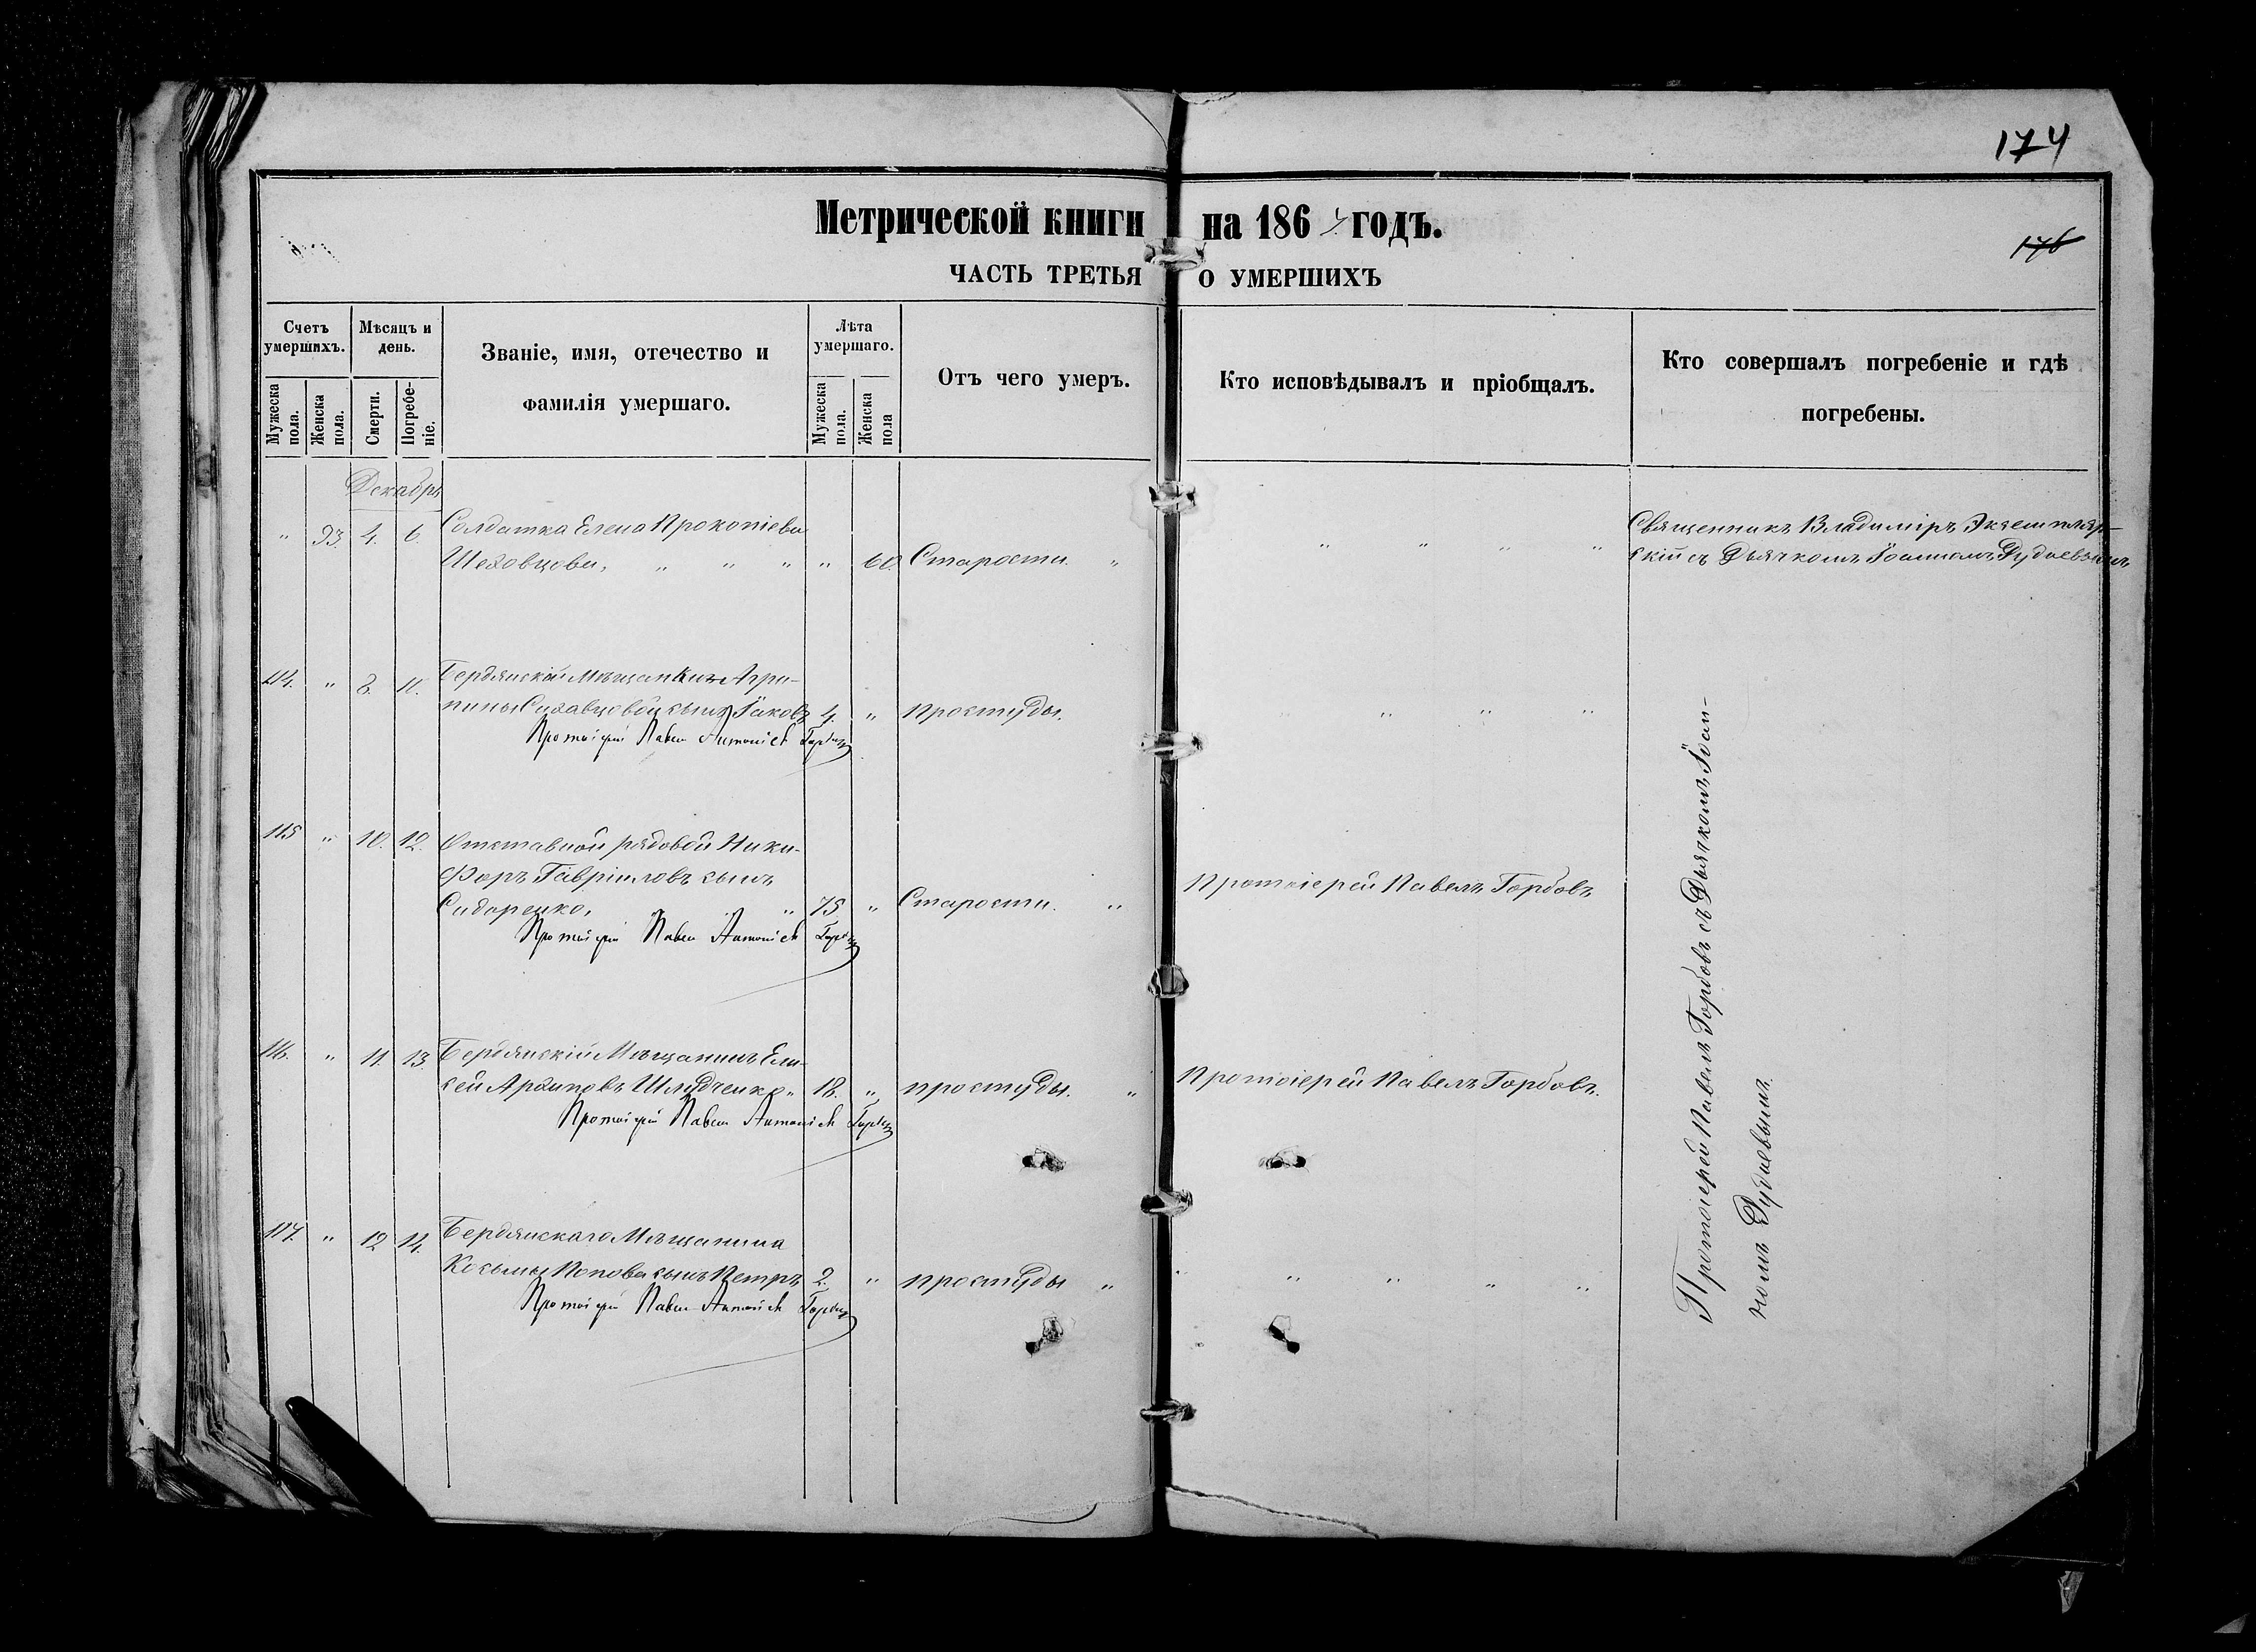 174
Метрической книги на 186 годъ.
176
ЧАСТЬ ТРЕТЬЯ О УМЕРШИХЪ
Счетъ умершихъ.
Мѣсяцъ и день.
Званіе, имя, отечество и
фамилія умершаго.
Лѣта умершаго.
Отъ чего умеръ.
Кто исповѣдывалъ и пріобщалъ.
Кто совершалъ погребеніе и гдѣ
погребены.
Мужеска пола.
Женска пола.
Смерти.
Погребе-
ніе.
Мужеска пола.
Женска пола
Декабрь
" 93. 4. 6. Солдатка Елена Прокопіева
Шеховцова, " " " " 60. Старости. "
" " " "
Священникъ Владиміръ Экземпляр-
скій съ Дьячкомъ Іоанномъ
114. " 8. 11. Бердянской Мѣщанки Агри-
пины сынъ Іаковъ 4. " простуды.
" " "
Протоіерей Павелъ Антоніевъ Горбовъ
115 " 10. 12. Отставной рядовой Ники-
форъ Гавріиловъ сынъ
Сидоренко, " " " 75 " Старости. "
Протоіерей Павелъ Горбовъ
Протоіерей Павелъ Антоніевъ Горбовъ
116. " 11. 13. Бердянскій Мѣщанинъ Ели-
сей Архиповъ " 18. " простуды. "
Протоіерей Павелъ Горбовъ.
Протоіерей Павелъ Антоніевъ Горбовъ
117. " 12 14. Бердянскаго Мѣщанина
Косьмы Попова сынъ Петръ 2. " простуды "
" " " " "
Протоіерей Павелъ Антоніевъ Горбовъ
Протоіерей Павелъ Горбовъ съ Дьячкомъ Іоан-
номъ